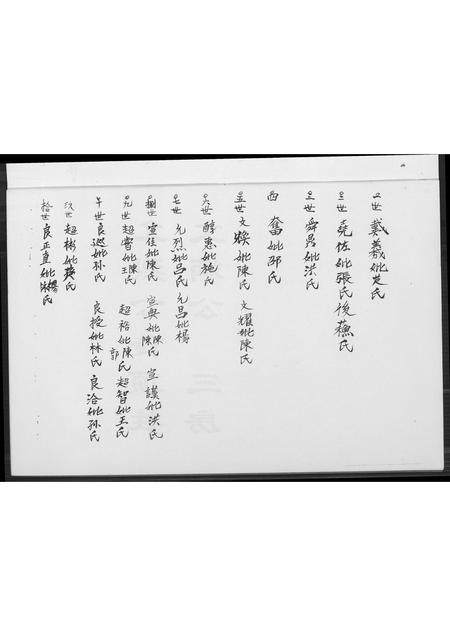 世 戴義妣吴氏
世 堯佐妣張氏後蘓氏
世 舜昌妣洪氏
四 奮妣邵氏
五世 文煥妣陳氏 文耀妣陳氏
六世 醇惠妣施氏
七世 允烈妣呂氏 允昌妣楊
捌世 宣佳妣陳氏 宣典妣陳陳氏 宣謨妣洪氏
九世 超睿妣王陳氏 超裕妣郭陳氏 超智妣王氏
午世 良巡妣孫氏 良授妣林氏 良洽妣孫氏
玖世 超彬妣黄氏
拾世 良正直妣楊氏
公
三房